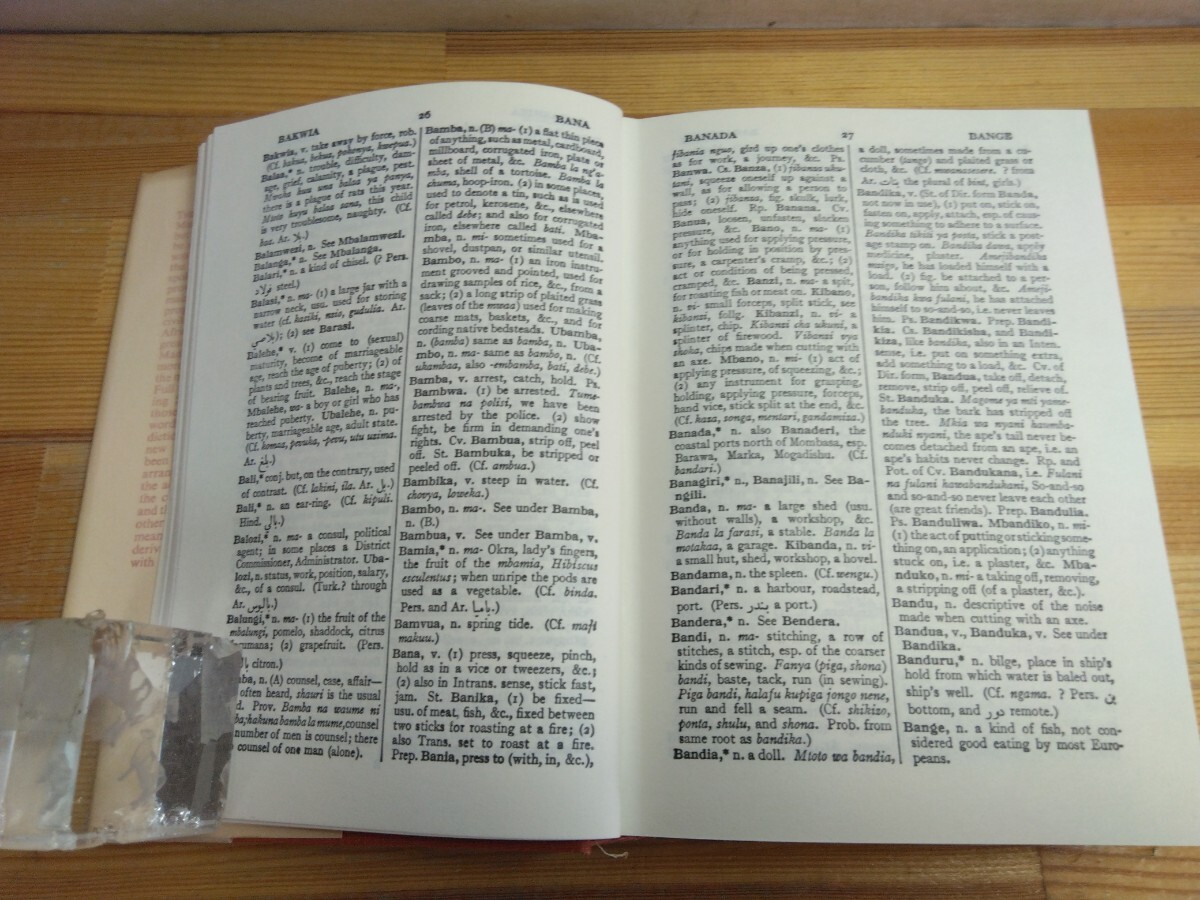 BAKWIA 26 BANA
Bakwia, v. take away by force, rob.
(Cf. bakua, bekua, pokonya, kwepua.)
Balaa,* n. trouble, difficulty, dam-
age, grief, calamity, a plague, pest.
Mwaka huu una balaa ya panya,
there is a plague of rats this year.
Mtoto huyu balaa sana, this child
is very troublesome, naughty. (Cf.
haz. Ar. بلا.)
Balamwezi, n. See Mbalamwezi.
Balanga,* n. See Mbalanga.
Balari,* n. a kind of chisel. (? Pers.
فولاد steel.)
Balasi,* n. ma- (1) a large jar with a
narrow neck, usu. used for storing
water (cf. kasiki, nzio, gudulia. Ar.
بلاصي); (2) see Barasi.
Balehe,* v. (1) come to (sexual)
maturity, become of marriageable
age, reach the age of puberty; (2) of
plants and trees, &c., reach the stage
of bearing fruit. Balehe, n. ma-,
Mbalehe, wa- a boy or girl who has
reached puberty. Ubalehe, n. pu-
berty, marriageable age, adult state.
(Cf. komaa, pevuka, -pevu, utu uzima.
Ar. بلغ.)
Bali,* conj. but, on the contrary, used
of contrast. (Cf. lakini, ila. Ar. بل.)
Bali,* n. an ear-ring. (Cf. kipuli.
Hind. بالي.)
Balozi,* n. ma- a consul, political
agent; in some places a District
Commissioner, Administrator. Uba-
lozi, n. status, work, position, salary,
&c., of a consul. (Turk.? through
Ar. باليوس.)
Balungi,* n. ma- (1) the fruit of the
mbalungi, pomelo, shaddock, citrus
decumana; (2) grapefruit. (Pers.
citron.)
n. (A) counsel, case, affair—
often heard, shauri is the usual
Prov. Bamba na waume ni
hakuna bamba la mume, counsel
number of men is counsel; there
counsel of one man (alone).
Bamba, n. (B) ma- (1) a flat thin piece
of anything, such as metal, cardboard,
millboard, corrugated iron, plate or
sheet of metal, &c. Bamba la ng'a-
mba, shell of a tortoise. Bamba la
chuma, hoop-iron. (2) in some places,
used to denote a tin, such as is used
for petrol, kerosene, &c., elsewhere
called debe; and also for corrugated
iron, elsewhere called bati. Mba-
mba, n. mi- sometimes used for a
shovel, dustpan, or similar utensil.
Bambo, n. ma- (1) an iron instru-
ment grooved and pointed, used for
drawing samples of rice, &c., from a
sack; (2) a long strip of plaited grass
(leaves of the mwaa) used for making
coarse mats, baskets, &c., and for
cording native bedsteads. Ubamba,
n. (bamba) same as bamba, n. Uba-
mbo, n. ma- same as bamba, n. (Cf.
ukambaa, also -embamba, bati, debe.)
Bamba, v. arrest, catch, hold. Ps.
Bambwa. (1) be arrested. Tume-
bambwa na polisi, we have been
arrested by the police. (2) show
fight, be firm in demanding one's
rights. Cv. Bambua, strip off, peel
off. St. Bambuka, be stripped or
peeled off. (Cf. ambua.)
Bambika, v. steep in water. (Cf.
chovya, loweka.)
Bambo, n. ma-. See under Bamba,
n. (B.)
Bambua, v. See under Bamba, v.
Bamia,* n. ma- Okra, lady's fingers,
the fruit of the mbamia, Hibiscus
esculentus; when unripe the pods are
used as a vegetable. (Cf. binda.
Pers. and Ar. باميا.)
Bamvua, n. spring tide. (Cf. maji
makuu.)
Bana, v. (1) press, squeeze, pinch,
hold as in a vice or tweezers, &c.;
(2) also in Intrans. sense, stick fast,
jam. St. Banika, (1) be fixed—
usu. of meat, fish, &c., fixed between
two sticks for roasting at a fire; (2)
also Trans. set to roast at a fire.
Prep. Bania, press to (with, in, &c.),
BANADA 27 BANGE
jibania nguo, gird up one's clothes
as for work, a journey, &c. Ps.
Banwa. Cs. Banza, (1) jibanza uku-
tani, squeeze oneself up against a
wall, as for allowing a person to
pass; (2) jibanza, fig. skulk, lurk,
hide oneself. Rp. Banana. Cv.
Banua, loosen, unfasten, slacken
pressure, &c. Bano, n. ma- (1)
anything used for applying pressure,
or for holding in position by pres-
sure, a carpenter's cramp, &c.; (2)
act or condition of being pressed,
cramped, &c. Banzi, n. ma- a spit,
for roasting fish or meat on. Kibano,
n. vi- small forceps, split stick, see
kibanzi, follg. Kibanzi, n. vi- a
splinter, chip. Kibanzi cha ukuni, a
splinter of firewood. Vibanzi vya
shoka, chips made when cutting with
an axe. Mbano, n. mi- (1) act of
applying pressure, of squeezing, &c.;
(2) any instrument for grasping,
holding, applying pressure, forceps,
hand vice, stick split at the end, &c.
(Cf. kaza, songa, mentari, gandamiza.)
Banada,* n. also Banaderi, the
coastal ports north of Mombasa, esp.
Barawa, Marka, Mogadishu. (Cf.
bandari.)
Banagiri,* n., Banajili, n. See Ba-
ngili.
Banda, n. ma- a large shed (usu.
without walls), a workshop, &c.
Banda la farasi, a stable. Banda la
motakaa, a garage. Kibanda, n. vi-
a small hut, shed, workshop, a hovel.
Bandama, n. the spleen. (Cf. wengu.)
Bandari,* n. a harbour, roadstead,
port. (Pers. بندر a port.)
Bandera,* n. See Bendera.
Bandi, n. ma- stitching, a row of
stitches, a stitch, esp. of the coarser
kinds of sewing. Fanya (piga, shona)
bandi, baste, tack, run (in sewing).
Piga bandi, halafu kupiga jongo nene,
run and fell a seam. (Cf. shikizo,
ponta, shulu, and shona. Prob. from
same root as bandika.)
Bandia,* n. a doll. Mtoto wa bandia,
a doll, sometimes made from a cu-
cumber (tango) and plaited grass or
cloth, &c. (Cf. mwanasesere. ? from
Ar. بنات the plural of bint, girls.)
Bandika, v. (St. of Dir. form Banda,
not now in use), (1) put on, stick on,
fasten on, apply, attach, esp. of caus-
ing something to adhere to a surface.
Bandika tikiti ya posta, stick a post-
age stamp on. Bandika dawa, apply
medicine, plaster. Amejibandika
mzigo, he has loaded himself with a
load. (2) fig. be attached to a per-
son, follow him about, &c. Ameji-
bandika kwa fulani, he has attached
himself to so-and-so, i.e. never leaves
him. Ps. Bandikwa. Prep. Bandi-
kia. Cs. Bandikisha, and Bandi-
kiza, like bandika, also in an Inten.
sense, i.e. put on something extra,
add something to a load, &c. Cv. of
Dir. form, Bandua, take off, detach,
remove, strip off, peel off, relieve of.
St. Banduka. Magome ya mti yame-
banduka, the bark has stripped off
the tree. Mkia wa nyani haumba-
nduki nyani, the ape's tail never be-
comes detached from an ape, i.e. an
ape's habits never change. Rp. and
Pot. of Cv. Bandukana, i.e. Fulani
na fulani hawabandukani, So-and-so
and so-and-so never leave each other
(are great friends). Prep. Bandulia.
Ps. Banduliwa. Mbandiko, n. mi-
(1) the act of putting or sticking some-
thing on, an application; (2) anything
stuck on, i.e. a plaster, &c. Mba-
nduko, n. mi- a taking off, removing,
a stripping off (of a plaster, &c.).
Bandu, n. descriptive of the noise
made when cutting with an axe.
Bandua, v., Banduka, v. See under
Bandika.
Banduru,* n. bilge, place in ship's
hold from which water is baled out,
ship's well. (Cf. ngama. ? Pers. بن
bottom, and دور remote.)
Bange, n. a kind of fish, not con-
sidered good eating by most Euro-
peans.